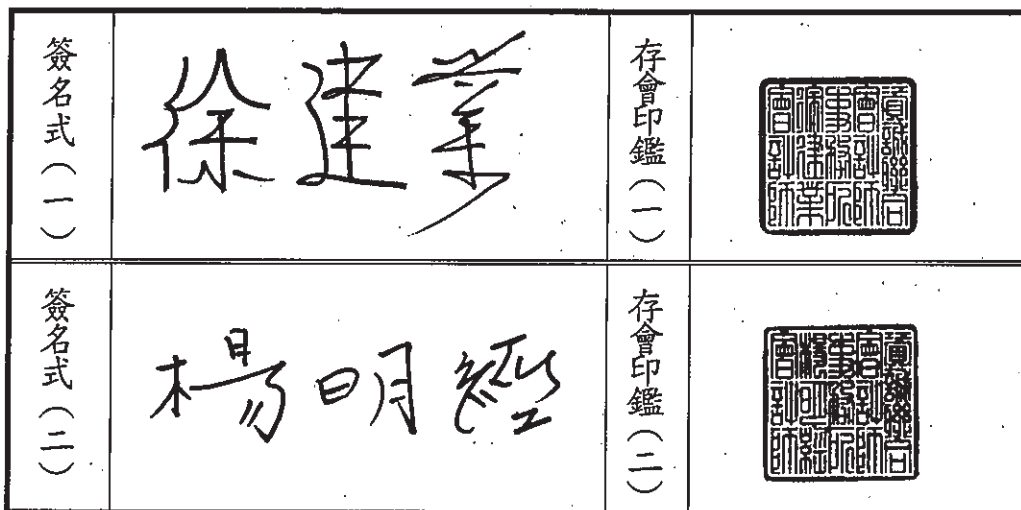 簽名式(一)
徐建業
存會印鑑(一)
資誠聯合
會計師
事務所
徐建業
會計師
簽名式(二)
楊明經
存會印鑑(二)
資誠聯合
會計師
事務所
楊明經
會計師